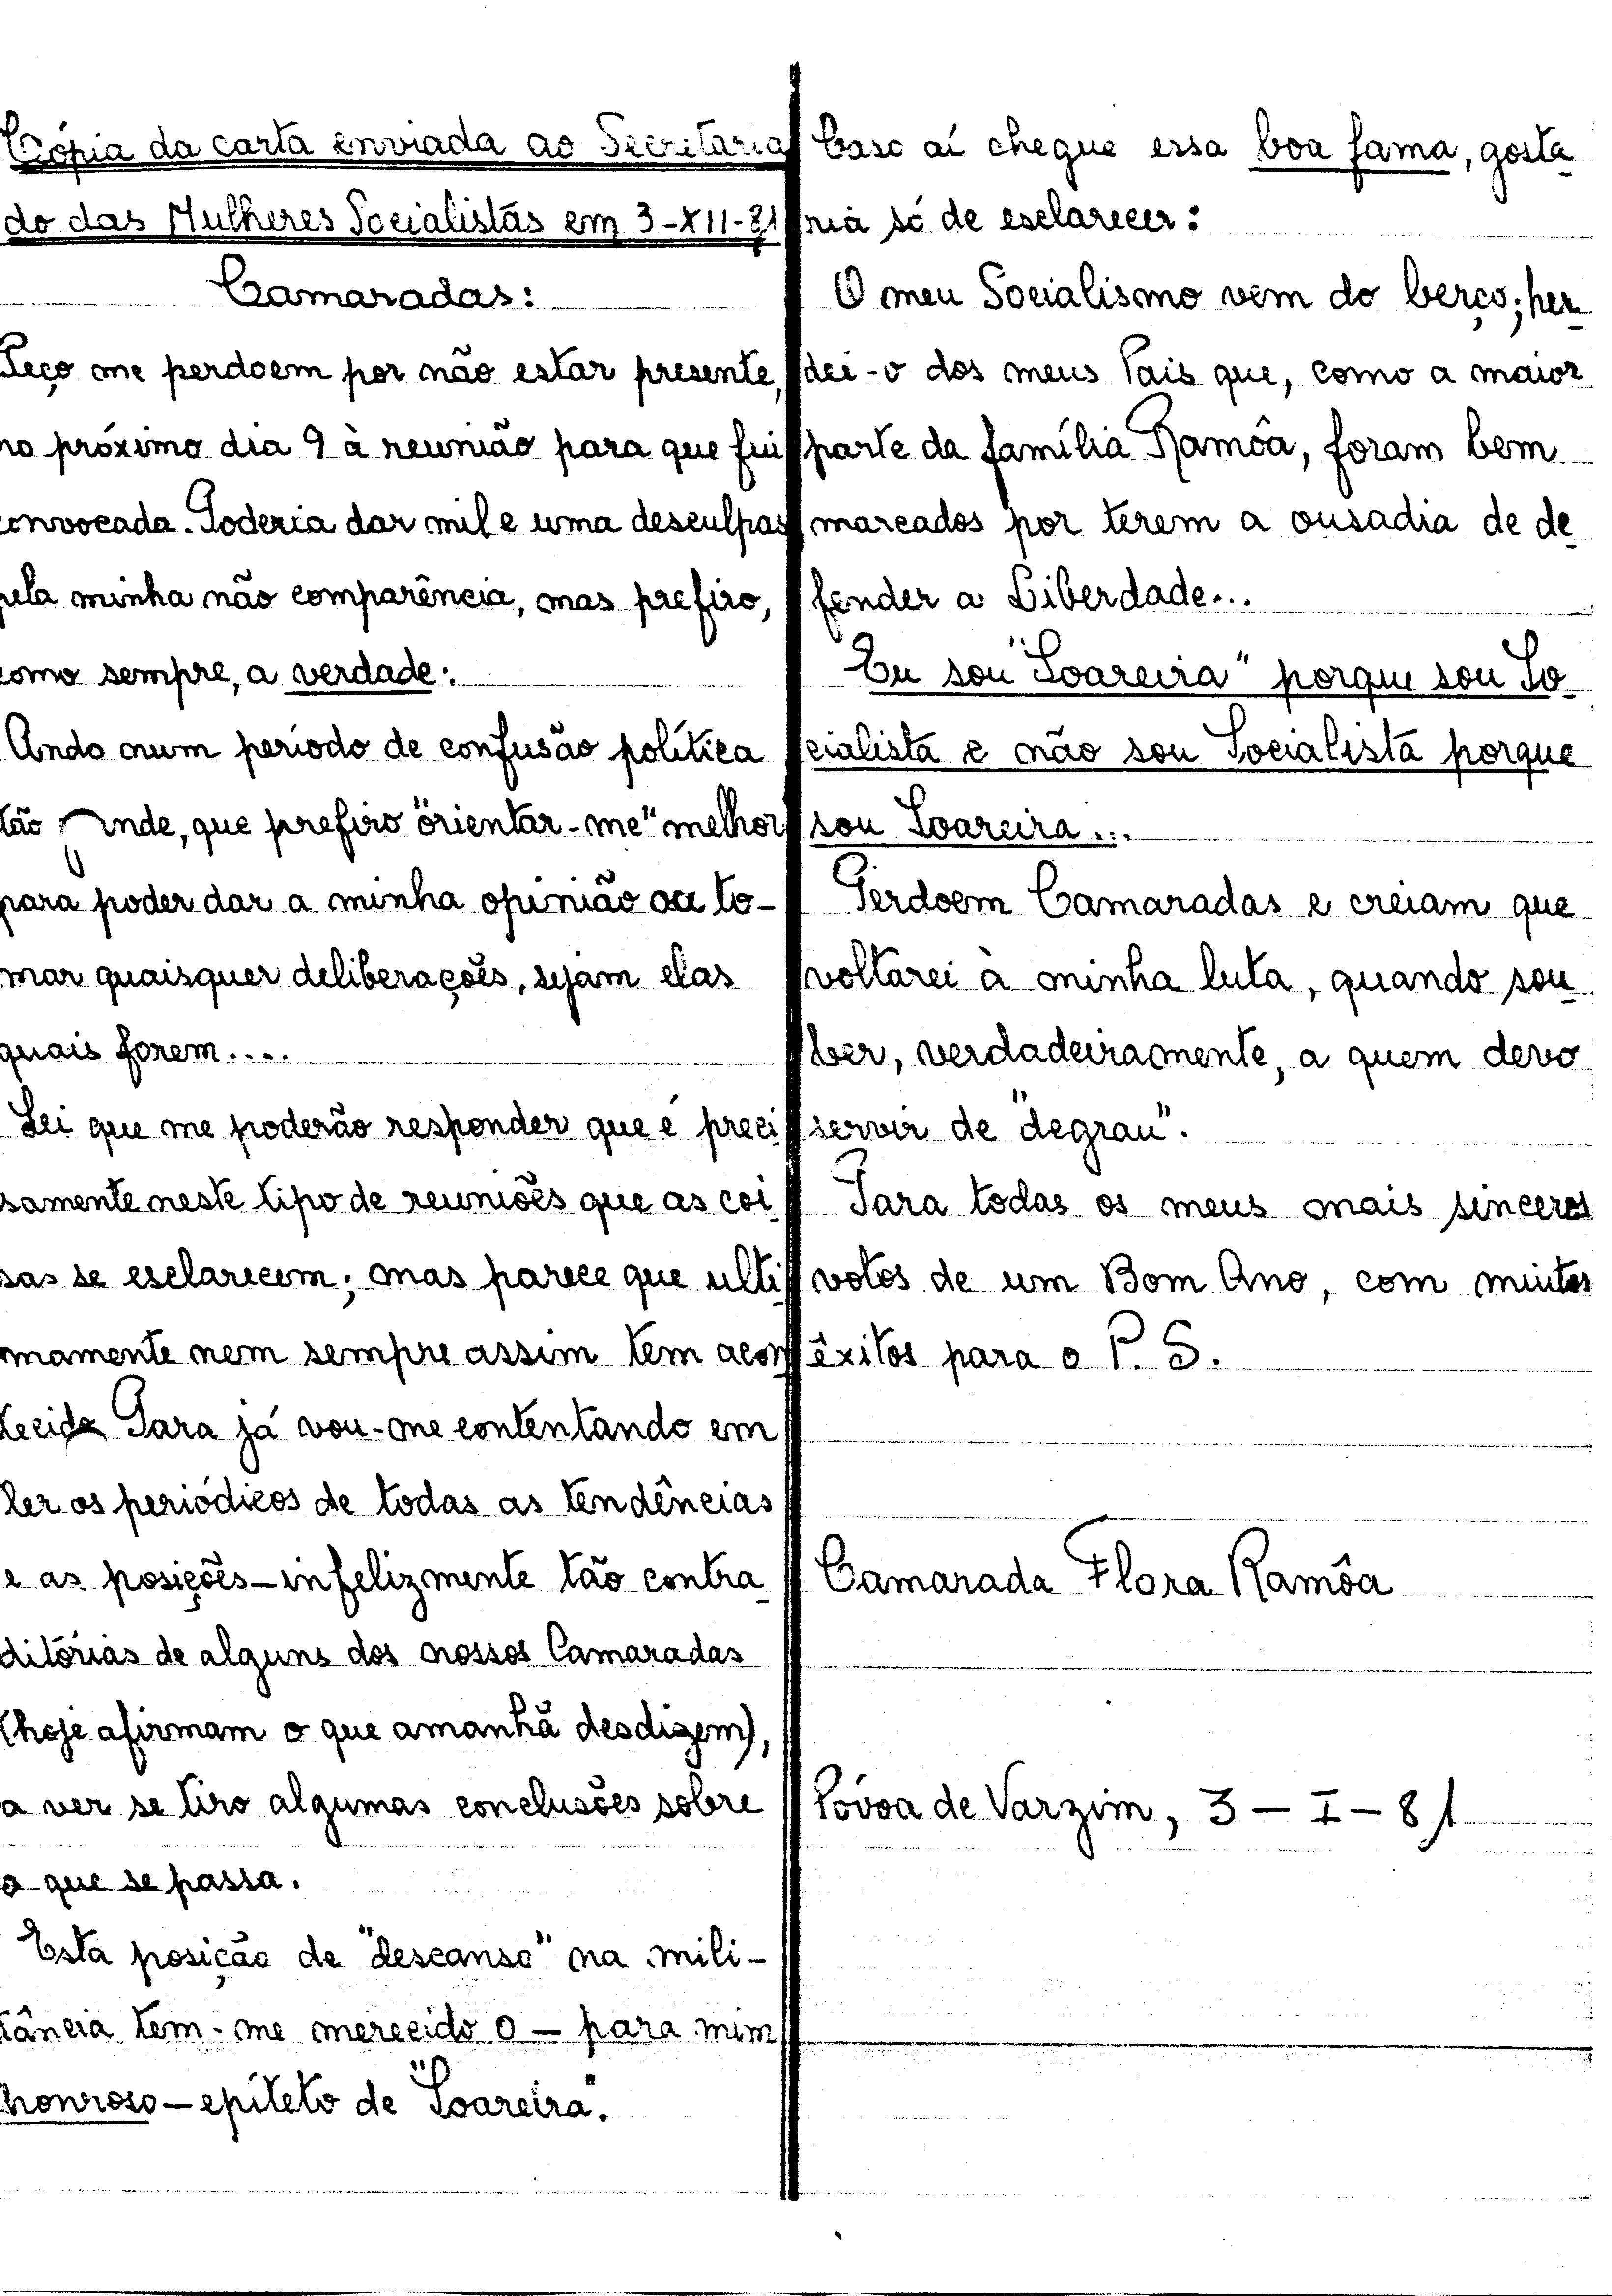 Cópia da carta enviada ao Secretaria
do das Mulheres Socialistas em 3-XII-81
Camaradas:
Peço me perdoem por não estar presente,
no próximo dia 9 à reunião para que fui
convocada. Poderia dar mil e uma desculpas
pela minha não comparência, mas prefiro,
como sempre, a verdade:
Ando num período de confusão política
tão grande, que prefiro "orientar-me" melhor
para poder dar a minha opinião ou to-
mar quaisquer deliberações, sejam elas
quais forem....
Sei que me poderão responder que é preci
samente neste tipo de reuniões que as coi
sas se esclarecem; mas parece que ulti
mamente nem sempre assim tem acon
tecido Para já vou-me contentando em
ler os periódicos de todas as tendências
e as posições-infelizmente tão contra
ditórias de alguns dos nossos Camaradas
(hoje afirmam o que amanhã desdizem),
a ver se tiro algumas conclusões sobre
o que se passa.
Esta posição de "descanso" na mili-
tância tem-me merecido o - para mim
honroso - epíteto de "Soareira".
Caso aí chegue essa boa fama, gosta
ria só de esclarecer:
O meu Socialismo vem do berço; her
dei-o dos meus Pais que, como a maior
parte da família Ramôa, foram bem
marcados por terem a ousadia de de
fender a Liberdade...
Eu sou "Soareira" porque sou So
cialista e não sou Socialista porque
sou Soareira...
Perdoem Camaradas e creiam que
voltarei à minha luta, quando sou
ber, verdadeiramente, a quem devo
servir de "degrau".
Para todas os meus mais sinceros
votos de um Bom Ano, com muitos
êxitos para o P. S.
Camarada Flora Ramôa
Póvoa de Varzim, 3 - I - 81